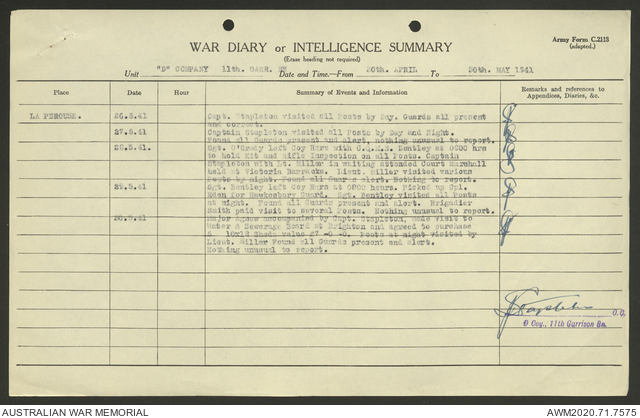 Army Form C.2118
(adapted.)
WAR DIARY or INTELLIGENCE SUMMARY
(Erase heading not required)
Unit "D" COMPANY 11th. GARR. BN Date and Time.—From 20th. APRIL To 20th. MAY 1941
Place Date Hour Summary of Events and Information Remarks and references to
Appendices, Diaries, &c.
LA PEROUSE. .5.41 Capt. Stapleton visited all Posts by Day. Guards all present
and correct.
.5.41 Captain Stapleton visited all Posts by Day and Night.
Found all Guards present and alert, nothing unusual to report.
.5.41 Sgt. O'Grady left Coy Hqrs with C.Q.M.S. Bentley at 0800 hrs
to hold Kit and Rifle Inspection on all Posts. Captain
Stapleton with Lt. Miller in waiting attended Court Marshall
held at Victoria Barracks. Lieut. Miller visited various
Posts by night. Found all Guards alert. Nothing to report.
.5.41 Sgt. Bentley left Coy Hqrs at 0800 hours. Picked up Cpl.
for Hawkesbury Guard. Sgt. Bentley visited all Posts
at night. Found all Guards present and Alert. Brigadier
Smith paid visit to several Posts. Nothing unusual to report.
.5.41 Major accompanied by Capt. Stapleton, made visit to
Water & Sewerage Board at Brighton and agreed to purchase
10x12 Sheds value £7 -0 -0. Posts at night visited by
Lieut. Miller Found all Guards present and alert.
Nothing unusual to report.
Stapleton O.C.
D Coy., 11th Garrison Bn.
AUSTRALIAN WAR MEMORIAL AWM2020.71.7575